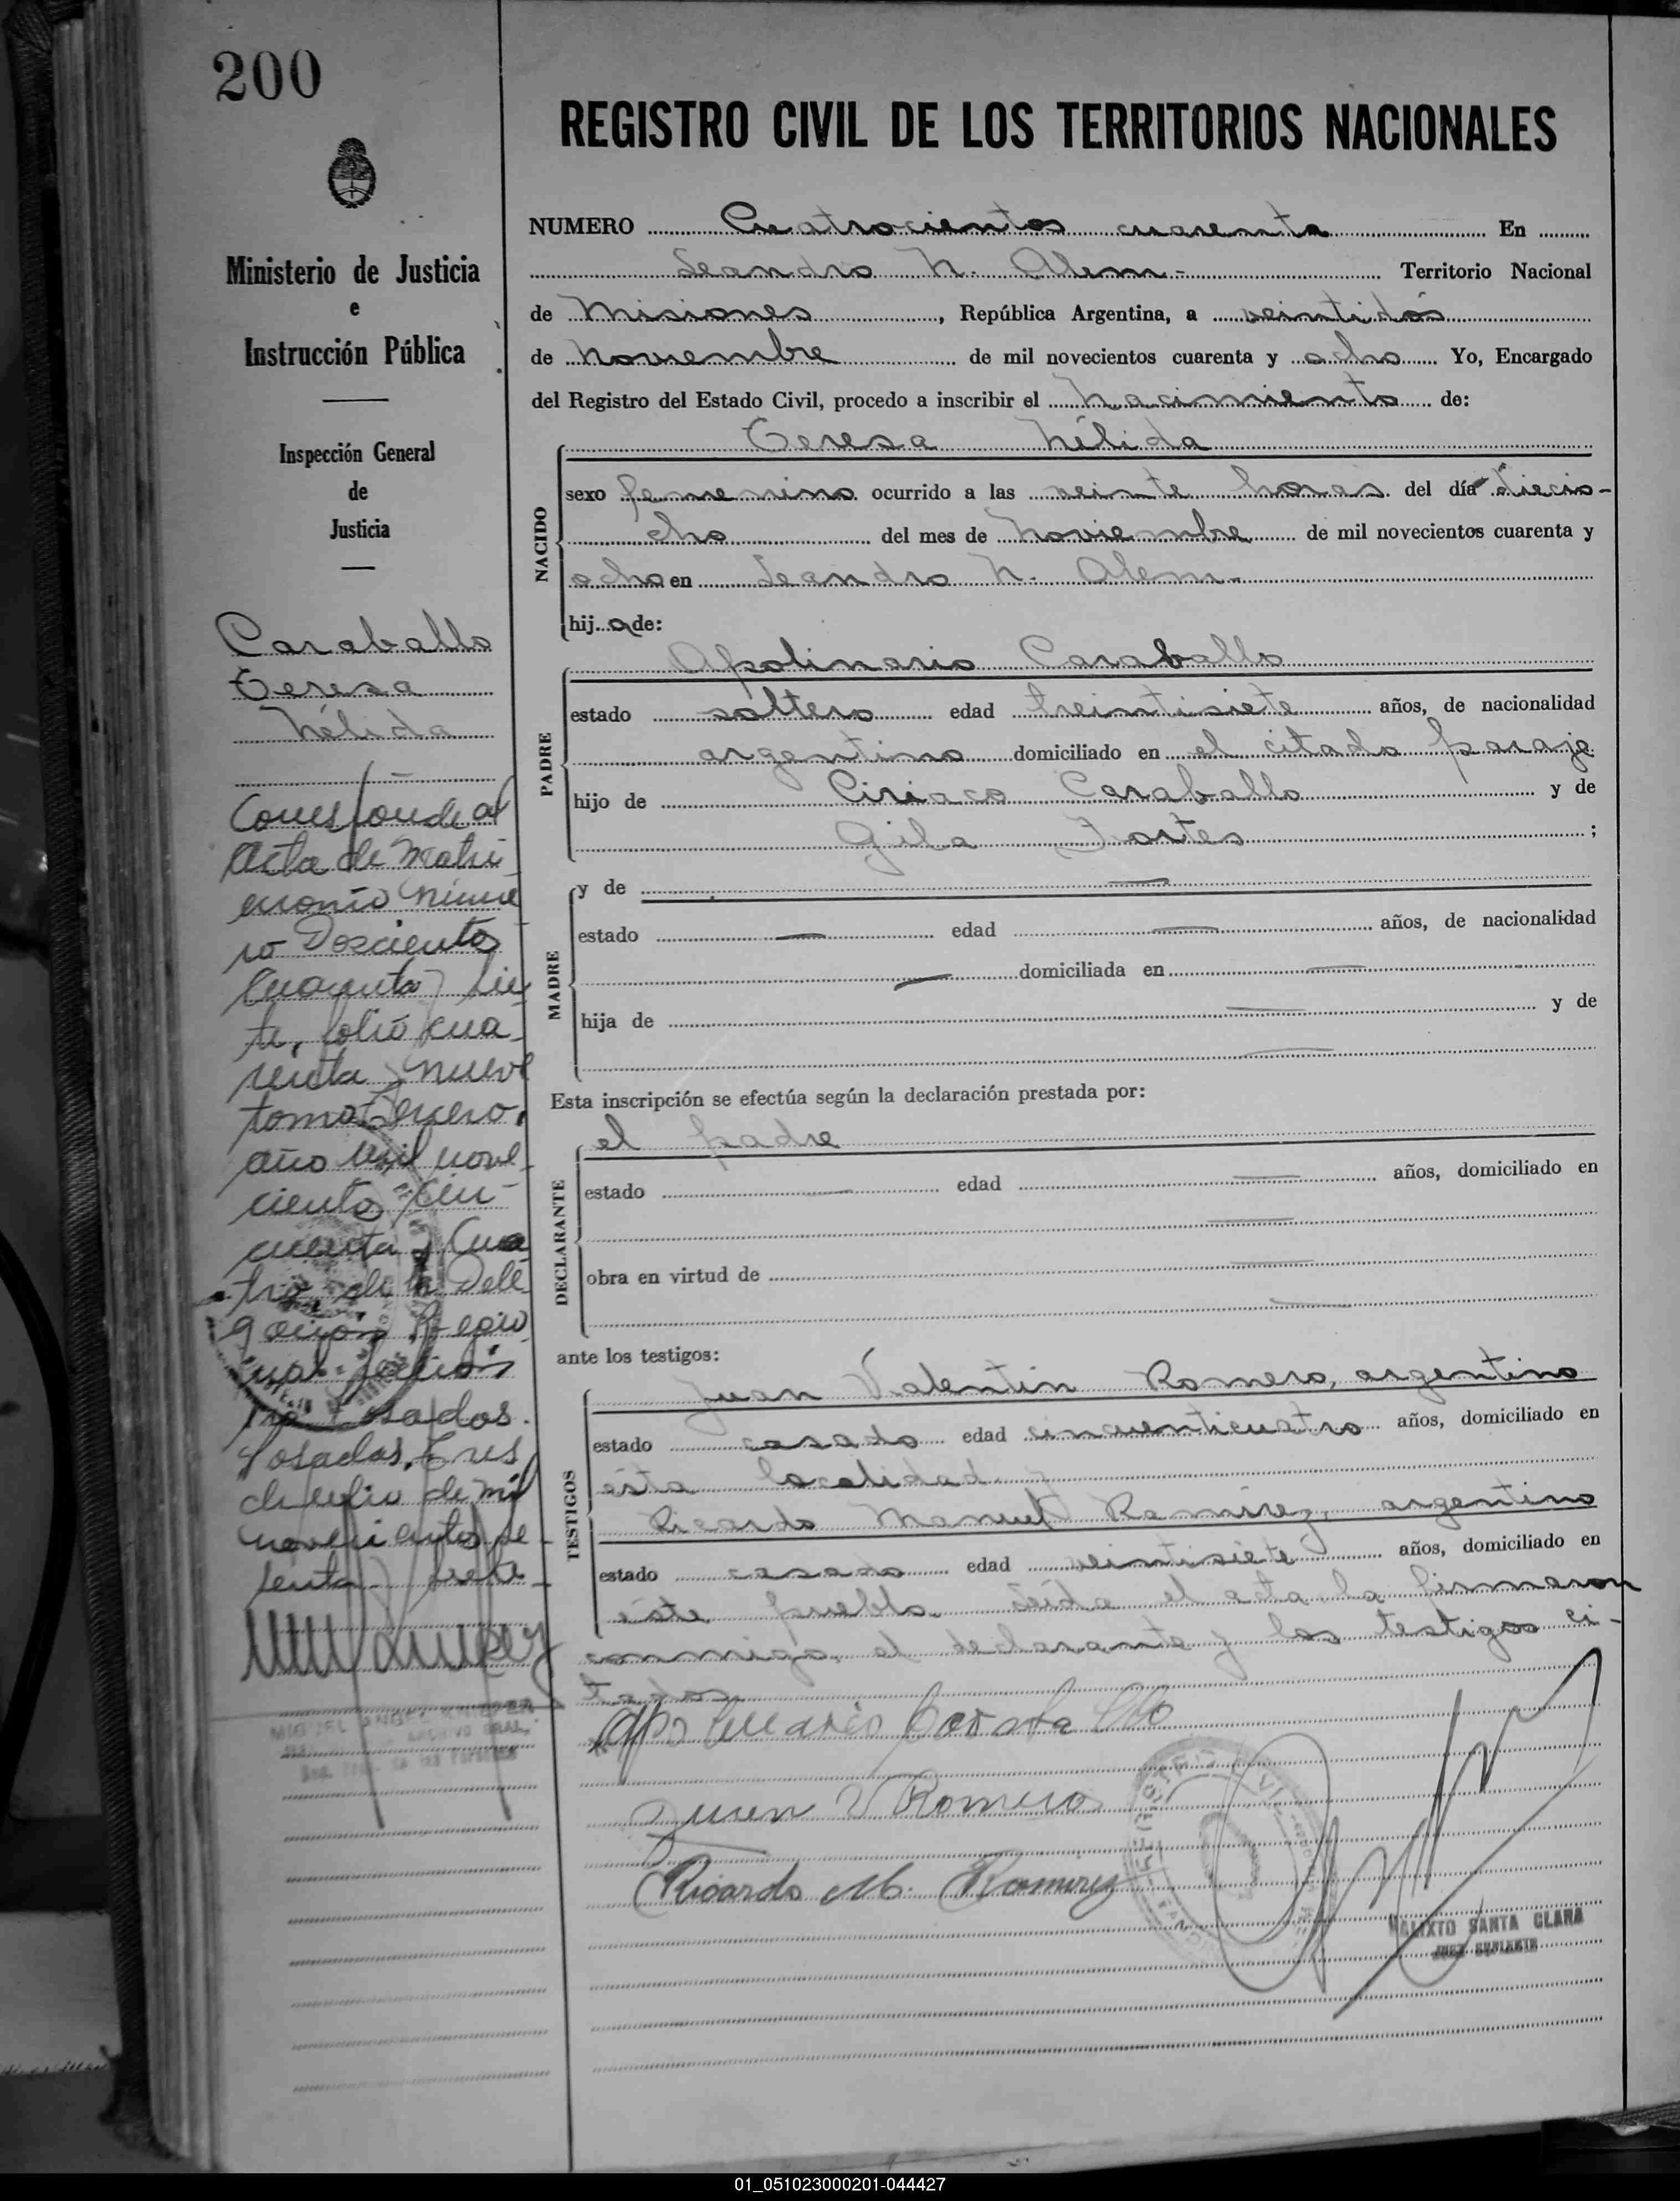 200
Ministerio de Justicia
e
Instrucción Pública
Inspección General
de
Justicia
Caraballo
Teresa
Nélida
Corresponde al
Acta de Matri
monio núme
ro Doscientos
Cuarenta y Sie
te, folio cua
renta y nueve
tomo Tercero,
año Mil nove
cientos cin-
cuenta y Cua
tro de la Dele
gación Regio
nal
Posadas.
Posadas, Tres
de Julio de mil
novecientos se-
tenta y siete-
MIGUEL ANGEL
ARCHIVO GRAL.
REGISTRO CIVIL DE LOS TERRITORIOS NACIONALES
NUMERO Cuatrocientos cuarenta En
Leandro N. Alem.- Territorio Nacional
de Misiones, República Argentina, a veintidós
de Noviembre de mil novecientos cuarenta y ocho Yo, Encargado
del Registro del Estado Civil, procedo a inscribir el Nacimiento de:
Teresa Nélida
NACIDO
sexo femenino ocurrido a las veinte horas del día diecio-
cho del mes de Noviembre de mil novecientos cuarenta y
ocho en Leandro N. Alem.-
hija de:
Apolinario Caraballo
PADRE
estado soltero edad treintisiete años, de nacionalidad
argentino domiciliado en el citado paraje
hijo de Ciriaco Caraballo y de
Gila Fortes ;
MADRE
y de —
estado — edad — años, de nacionalidad
— domiciliada en —
hija de — y de
—
Esta inscripción se efectúa según la declaración prestada por:
el padre
DECLARANTE
estado — edad — años, domiciliado en
—
obra en virtud de —
—
ante los testigos:
Juan Valentin Romero, argentino
TESTIGOS
estado casado edad cincuenticuatro años, domiciliado en
ésta localidad y
Ricardo Manuel Ramírez, argentino
estado casado edad veintisiete años, domiciliado en
éste pueblo. Leída el acta la firmaron
conmigo, el declarante y los testigos ci-
tados
Apolinario Caraballo
Juan V Romero
Ricardo M. Ramirez
CALIXTO SANTA CLARA
JUEZ SUPLENTE
01_051023000201-044427